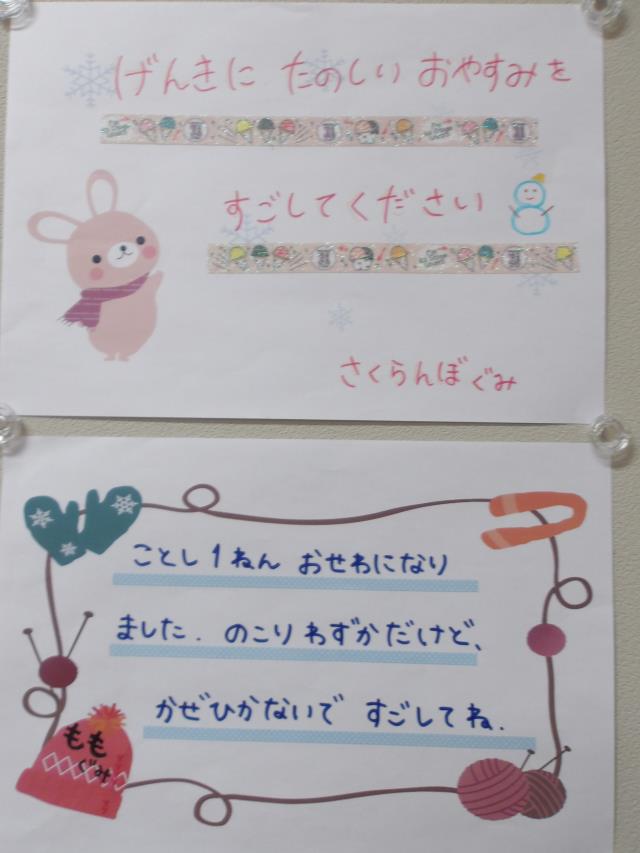 げんきに たのしい おやすみを
すごしてください
さくらんぼぐみ
ことし1ねん おせわになり
ました. のこりわずかだけど、
かぜひかないで すごしてね.
もも
ぐみ